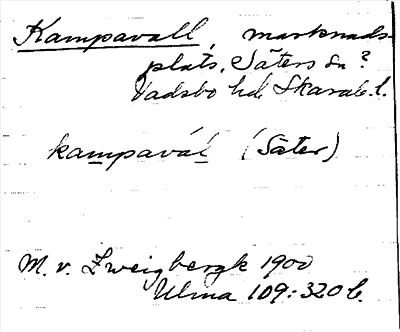 Kampavall, marknads-
plats, Säters sn?
Vadsbo hd, Skarab. l.
kampavál (Säter)
M. v. Zweigbergk 1900
Ulma 109:320 b.